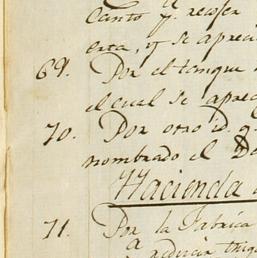 Canto y. recoser
esta, y se apreci
69. Por el tanque
el cual se aprec
70. Por otro id. q
nombrado el De
Hacienda
71. Por la Fabrica
a
reducir trig